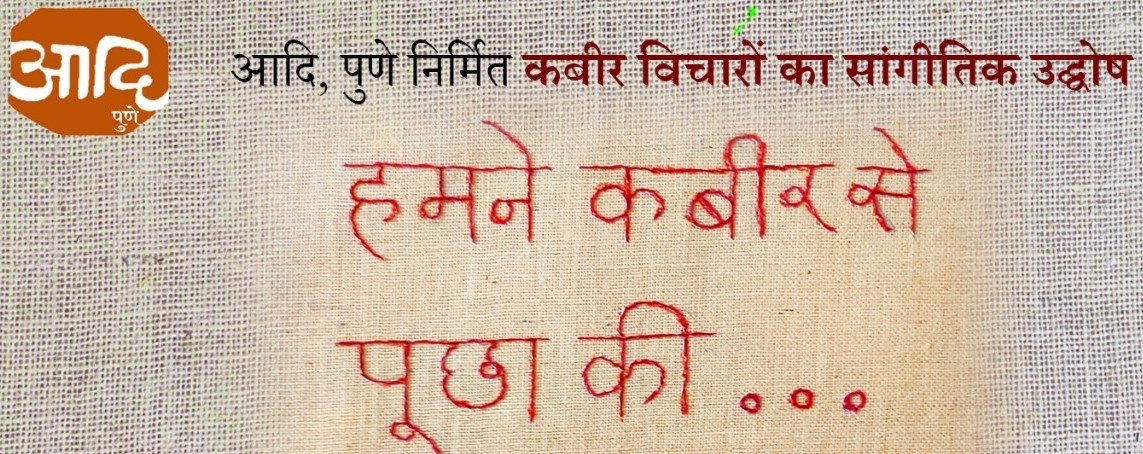 आदि
पुणे
आदि, पुणे निर्मित कबीर विचारों का सांगीतिक उद्घोष
हमने कबीर से
पूछा की ...